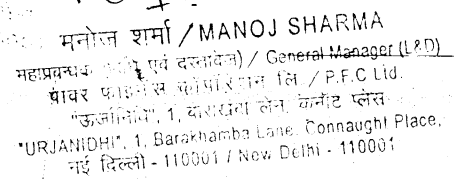 मनोज शर्मा / MANOJ SHARMA
महाप्रबन्धक एवं दस्तावेज) / General Manager (L&D)
पावर फाइनेंस कॉर्पोरेशन लि. / P.F.C Ltd.
"ऊर्जानिधि", 1, बाराखंबा लेन, कनॉट प्लेस
"URJANIDHI", 1, Barakhamba Lane, Connaught Place,
नई दिल्ली - 110001 / New Delhi - 110001